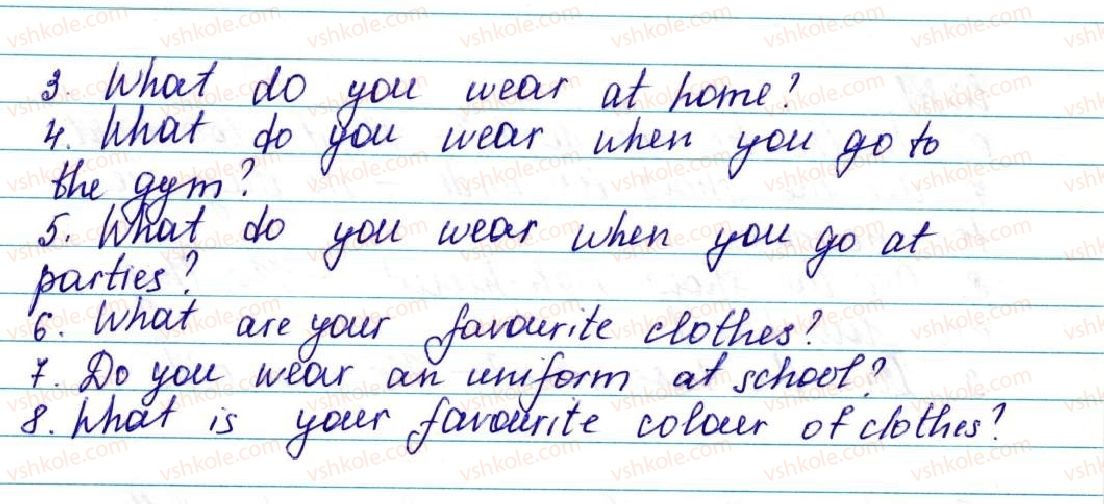 3. What do you wear at home?
4. What do you wear when you go to
the gym?
5. What do you wear when you go at
parties?
6. What are your favourite clothes?
7. Do you wear an uniform at school?
8. What is your favourite colour of clothes?